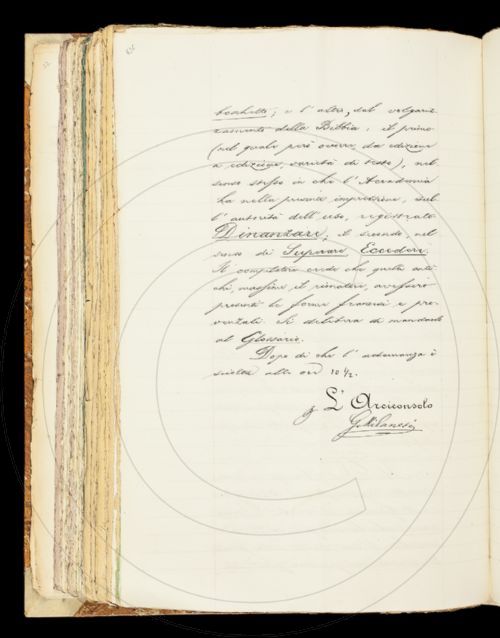 boschetti; e l'altro, dal volgariz-
zamento della Bibbia: il primo
(nel quale però occorre, da edizione
a edizione, varietà di testo), nel
senso stesso in che l'Accademia
ha nella presente impressione, sul-
l'autorità dell'uso, registrato
Dinanzari; il secondo, nel
senso di Superare Eccedere.
Il compilatore crede che quelli anti-
chi, massime il rimatore, avessero
presenti le forme francesi e pro-
venzali. Si delibera di mandarlo
al Glossario.
Dopo di che l'adunanza è
sciolta alle ore 10 ½.
L'Arciconsolo
G. Milanesi